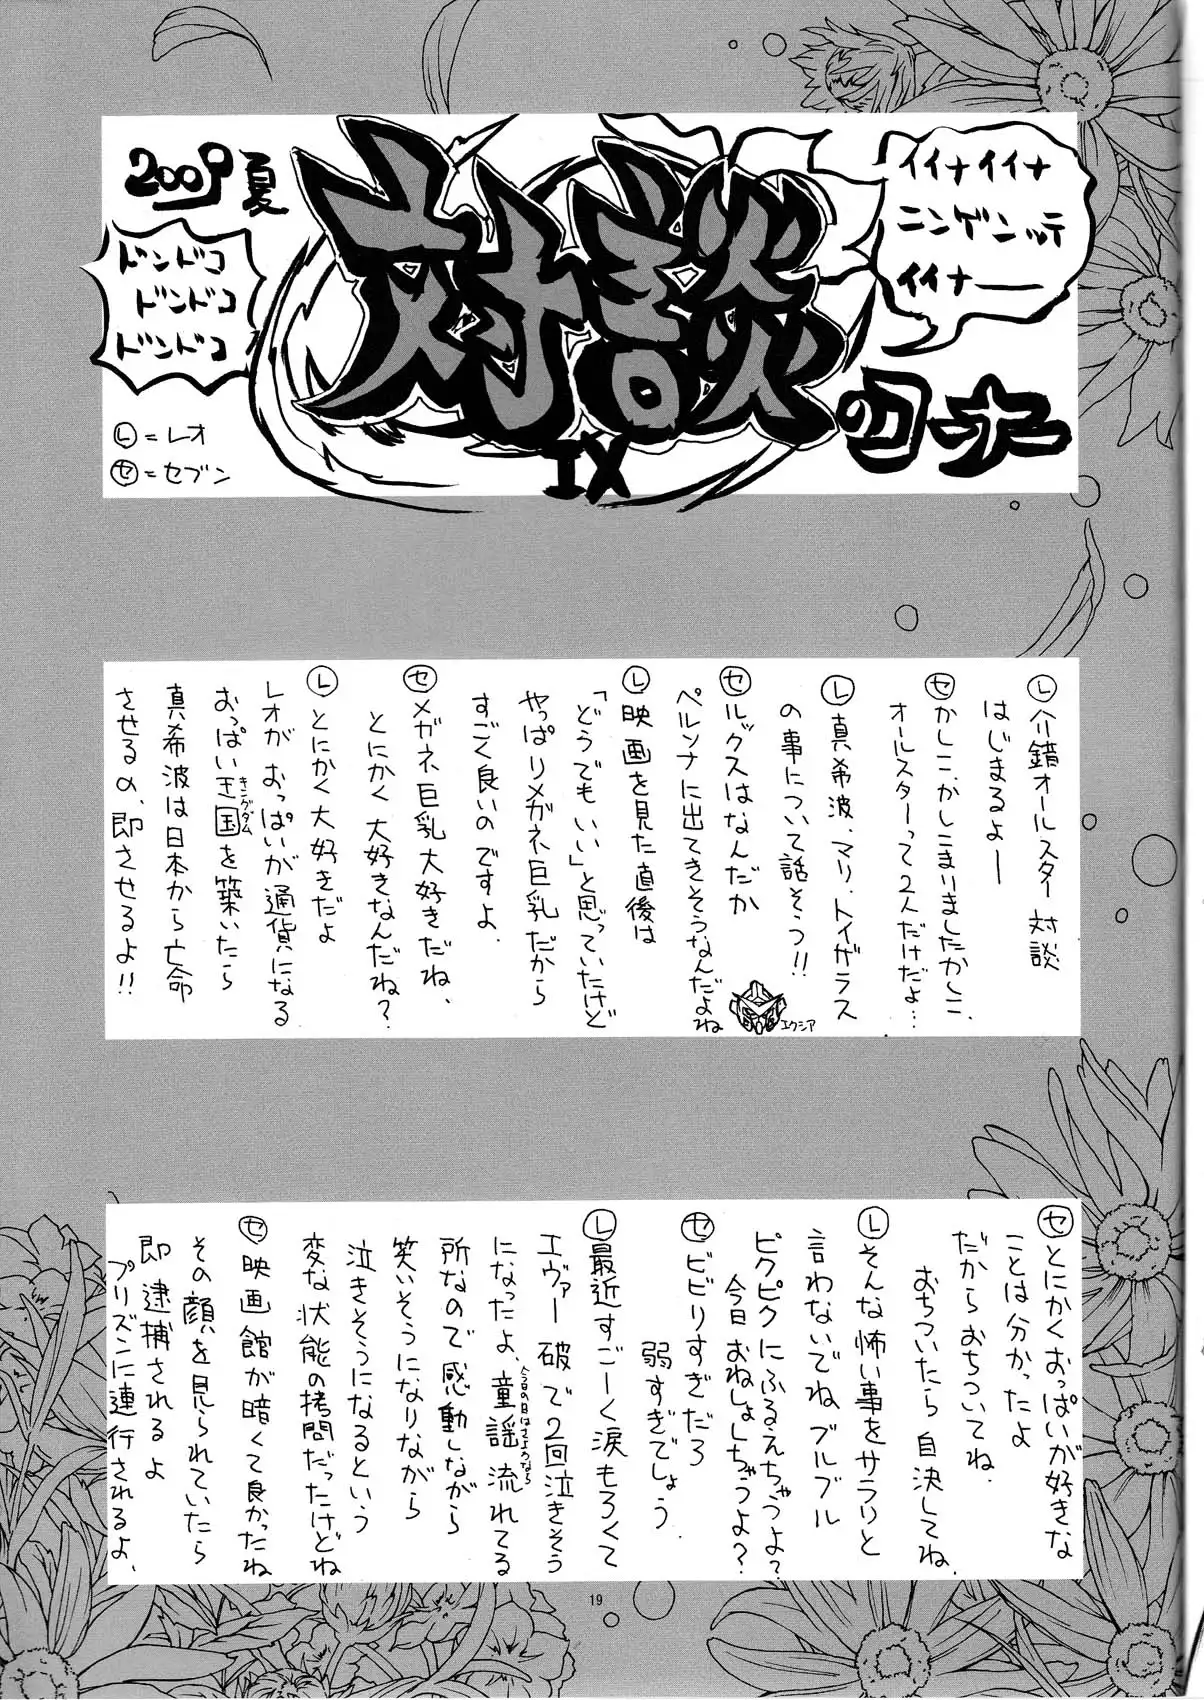 2009夏
対談
IX
のコーナー
イイナイイナ
ニンゲンッテ
イイナー
ドンドコ
ドンドコ
ドンドコ
Ⓛ=レオ
㋝=セブン
Ⓛ介錯オールスター対談
はじまるよー
㋝かしこ、かしこまりましたかしこ、
オールスターって2人だけだよ…
Ⓛ真希波、マリ、トイザラス
の事について話そう!!
㋝ルックスはなんだか
ペルソナに出てきそうなんだよね
エクシア
Ⓛ映画を見た直後は
「どうでもいい」と思っていたけど
やっぱりメガネ巨乳だから
すごく良いのですよ。
㋝メガネ巨乳大好きだね、
とにかく大好きなんだね?
Ⓛとにかく大好きだよ
レオがおっぱいが通貨になる
おっぱい王国を築いたら
キングダム
真希波は日本から亡命
させるの、即させるよ!!
㋝とにかくおっぱいが好きな
ことは分かったよ
だからおちついてね、
おちついたら自決してね、
Ⓛそんな怖い事をサラリと
言わないでねブルブル
ピクピクにふるえちゃうよ?
今日おねしょしちゃうよ?
㋝ビビりすぎだろ
弱すぎでしょう
Ⓛ最近すごーく涙もろくて
エヴァー破で2回泣きそう
になったよ、童謡流れてる
今日の日はさようなら
所なので感動しながら
笑いそうになりながら
泣きそうになるという
変な状態の拷問だったけどね
㋝映画館が暗くて良かったね
その顔を見られていたら
即逮捕されるよ
プリズンに連行されるよ、
19